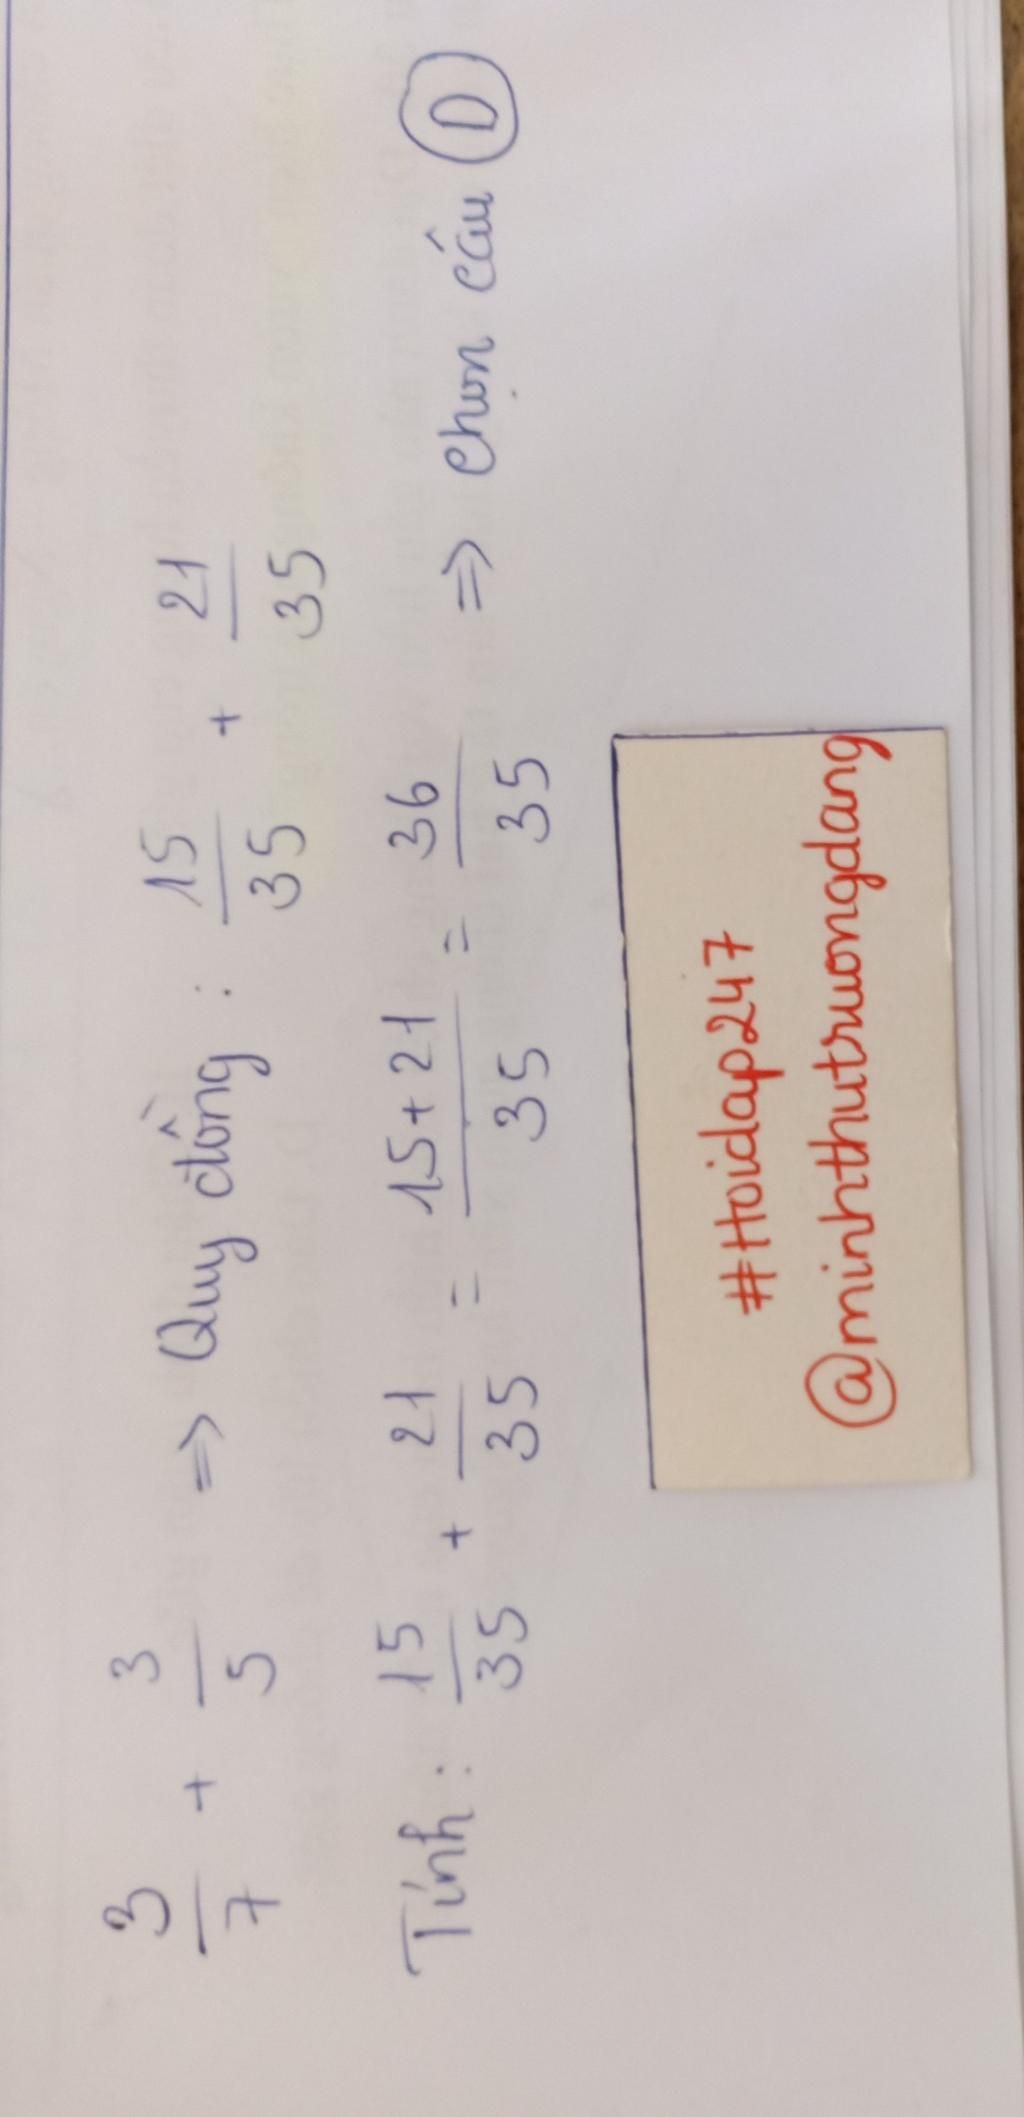 3/7 + 3/5 => Quy đồng : 15/35 + 21/35
Tính : 15/35 + 21/35 = 15+21/35 = 36/35 => chọn câu D
#Hoidap247
@minhthutruongdang